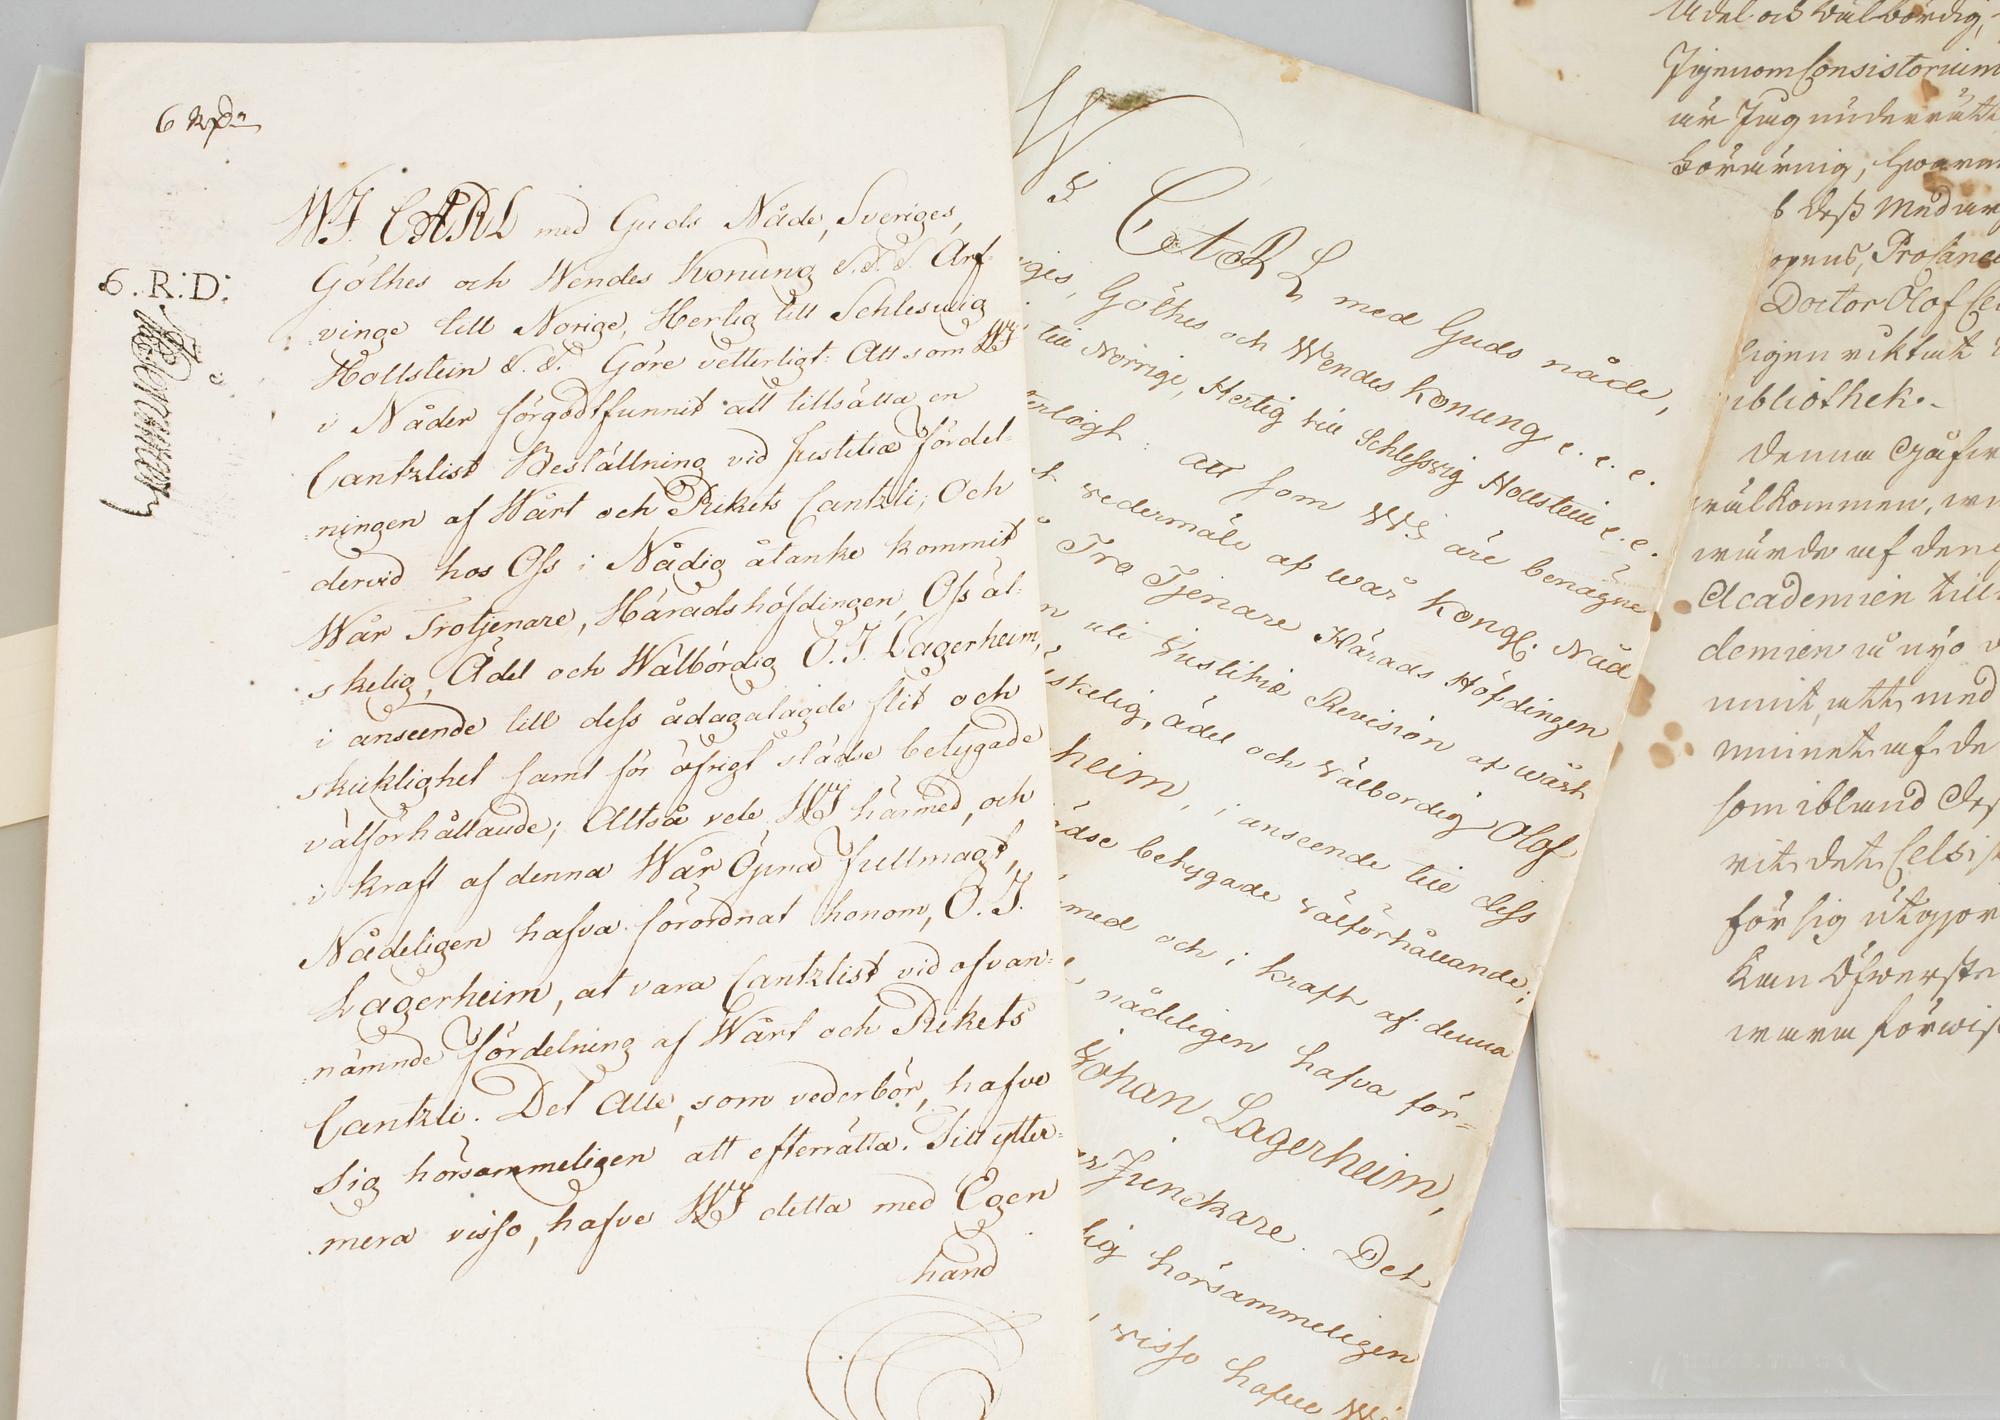 6 Rd
6. R: D:
WJ CARL med Guds Nåde, Sveriges,
Göthes och Wendes Konung &.&.&. Arf-
vinge till Norige, Hertig till Schleswig
Hollstein &. &. Göre vetterligt: Att som WJ
i Nåder förgodtfunnit att tillsätta en
Cantzlist Beställning vid Justitiæ Fördel-
ningen af Wårt och Rikets Cantzli; Och
dervid hos Oss i Nådig åtanke kommit
Wår Trotjenare, Häradshöfdingen, Oss äl-
skelig, Ädel och Wälbördig O. J. Lagerheim,
i anseende till dess ådagalagde flit och
skicklighet samt för öfrigt städse betygade
välförhållande; Altså vele WJ härmed, och
i kraft af denna Wår Öpna Fullmagt,
Nådeligen hafva förordnat honom, O. J.
Lagerheim, at vara Cantzlist vid ofvan-
nämnde Fördelning af Wårt och Rikets
Cantzli. Det Alle, som vederbör, hafve
sig hörsammeligen att efterrätta. Till ytter-
mera visso, hafve WJ detta med Egen
hand
Wi
CARL med Guds nåde,
Göthes och Wendes Konung e. e. e.
till Norrige, Hertig till Schlesswig Hollstein e. e.
att som Wi äre benägne
vedermäle af wår Kongl. Nåd
Tro Tjenare Härads Höfdingen
uti Justitiæ Revision af wårt
skelig, ädel och välbordig Olof
heim, i anseende till dess
betygade välförhållande;
med och i kraft af denna
nådeligen hafva för-
Johan Lagerheim,
Junckare. Det
sig hörsammeligen
visso hafve Wi
Ädel och Wälbördig,
Igenom Consistorium
är Jag underrätt
b dess Medar
Doctor Olof Cel
ibliothek.
Denna Gåfw
wälkommen, w
warde af den
Academien till
demien å nyo
mit, att med
minnet af de
som ibland des
rit det Celsi
för sig utgjor
Kan Öfwerste
wara förwis